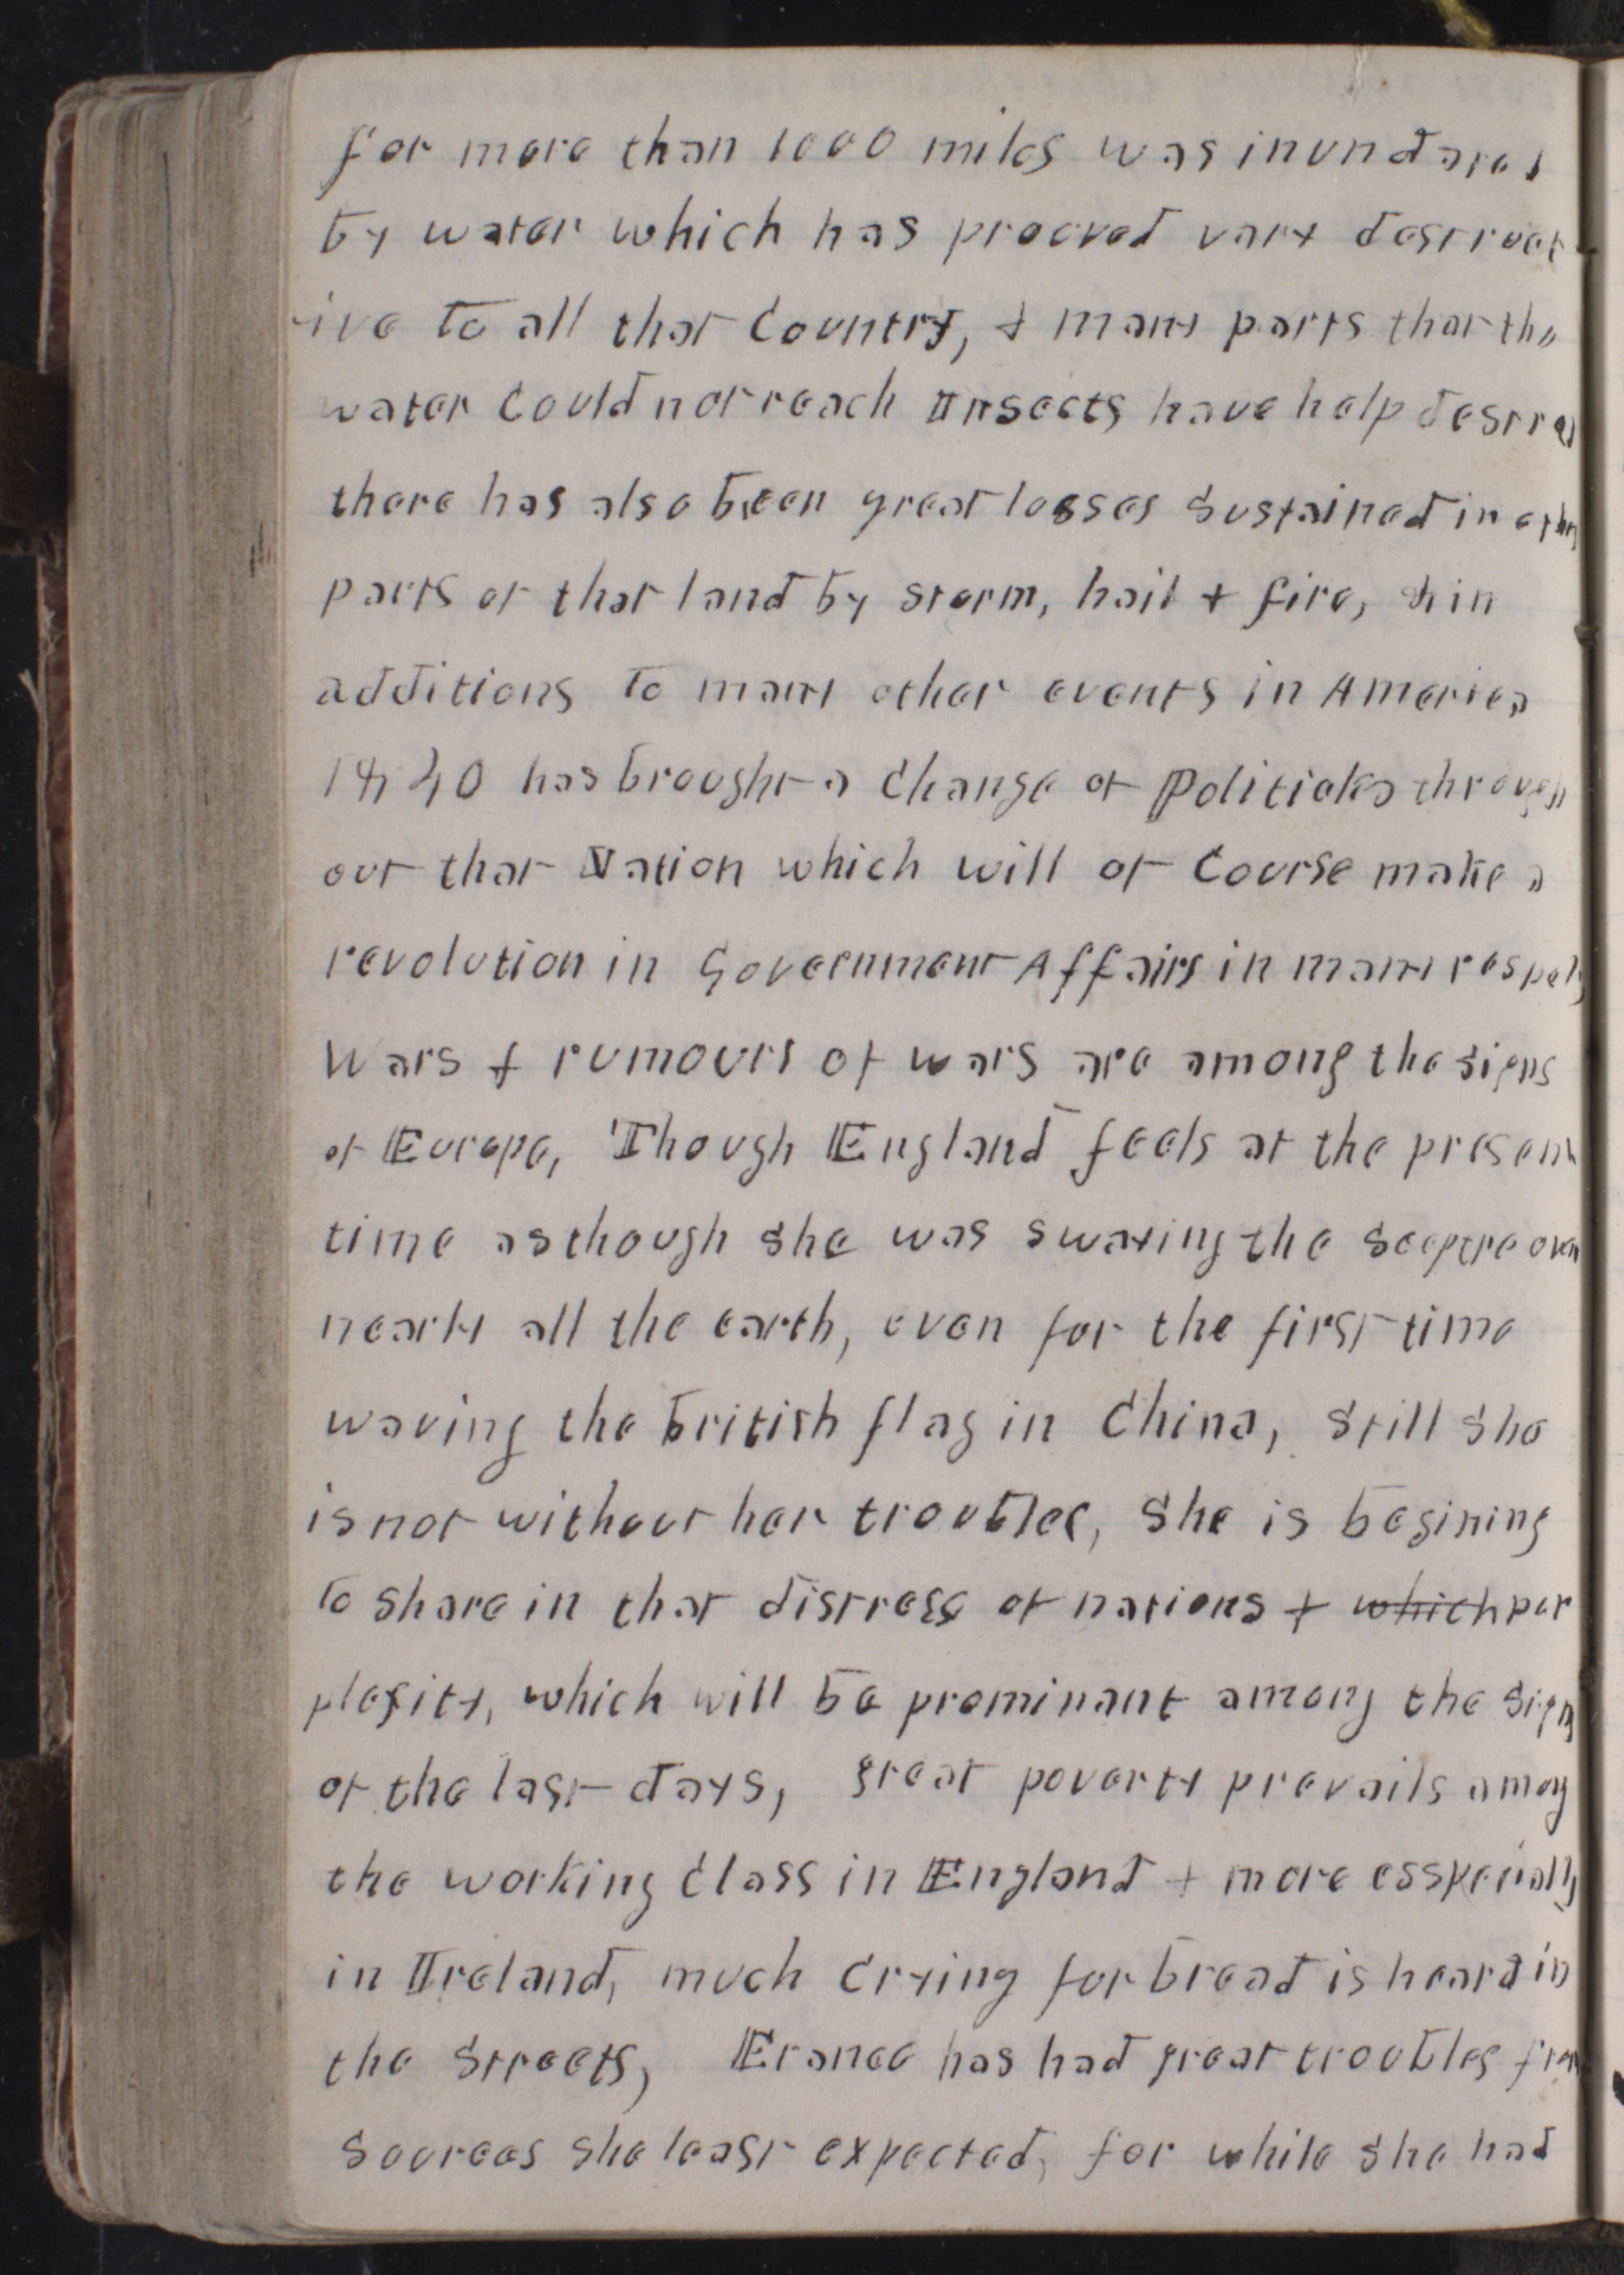 for more than 1000 miles was inundated
by water which has prooved vary destruct
-ive to all that Country, & many parts that the
water Could not reach Insects have help destroy
there has also been great losses Sustained in other
parts of that land by storm, hail & fire, & in
additions to many other events in America
1840 has brought a Change of Politicks through
out that Nation which will of Course make a
revolution in Government Affairs in many respets
Wars & rumours of wars are among the signs
of Europe, Though England feels at the present
time as though she was swaying the Sceptre over
nearly all the earth, even for the first time
waving the british flag in China, Still She
is not without her troubles, She is begining
to Share in that distress of nations & which per
plexity, which will be prominant among the Signs
of the last days, great poverty prevails among
the working Class in England & more esspecially
in Ireland, much Crying for bread is heard in
the Streets, France has had great troubles from
Sources She least expected, for while She had